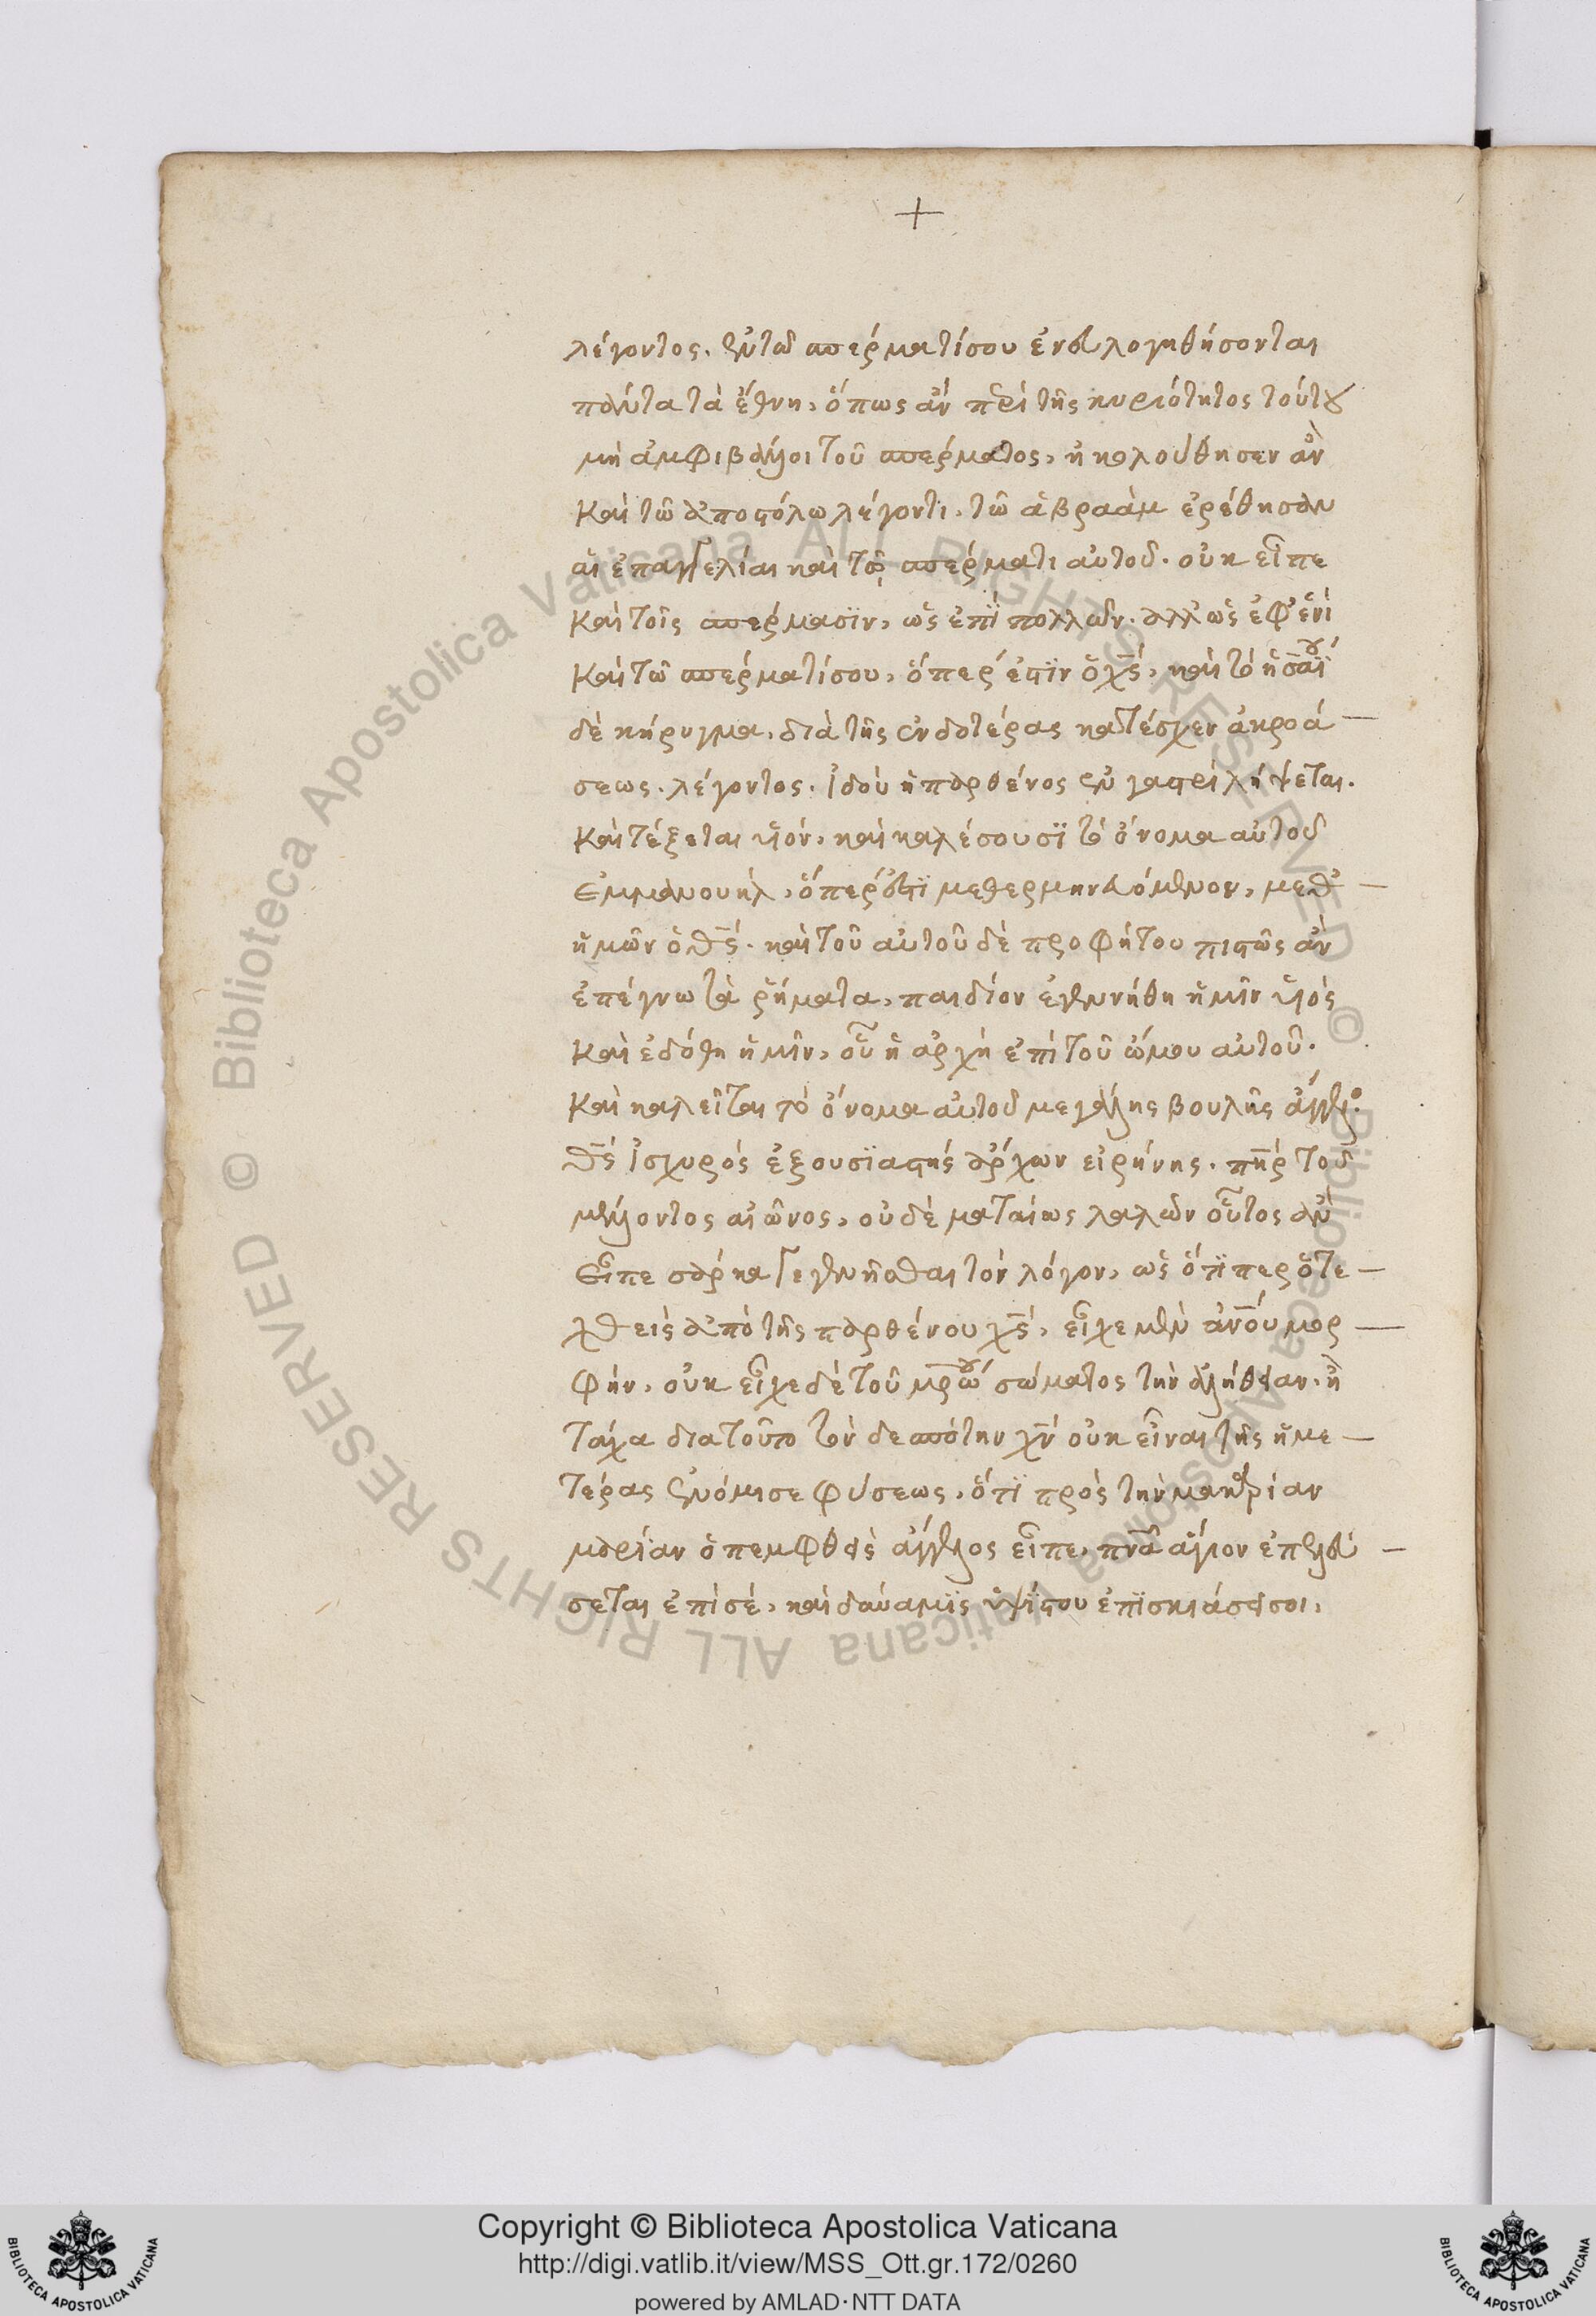 +
λέγοντος. ἐν τῶ σπέρματί σου ἐνευλογηθήσονται
πάντα τὰ ἔθνη, ὅπως ἂν περὶ τῆς κυριότητος τούτου
μὴ ἀμφιβάλλοι τοῦ σπέρματος, ἠκολούθησεν ἂν
Καὶ τῶ ἀποστόλω λέγοντι. τῶ ἁβραὰμ ἐρέθησαν
αἱ ἐπαγγελίαι καὶ τῷ σπέρματι αὐτοῦ. οὐκ εἶπε
Καὶ τοῖς σπέρμασϊν, ὡς ἐπῒ πολλῶν. ἀλλ' ὡς ἐφ' ἑνὶ
Καὶ τῶ σπέρματί σου, ὅπερ ἐστϊν ὁ χς, καὶ τὸ ἡσαΐου
δὲ κήρυγμα, διὰ τῆς ἐνδοτέρας κατέσχεν ἀκροά –
σεως. λέγοντος. ἰδοὺ ἡ παρθένος ἐν γαστρὶ λήψεται.
Καὶ τέξεται υἱόν, καὶ καλέσουσϊ τὸ ὄνομα αὐτοῦ
Ἐμμανουήλ, ὅπερ ἐστὶ μεθερμηνευόμενον, μεθ' –
ἡμῶν ὁ θς. καὶ τοῦ αὐτοῦ δὲ προφήτου πιστῶς ἂν
ἐπέγνω τὰ ῥήματα, παιδίον ἐγεννήθη ἡμῖν υἱὸς
Καὶ ἐδόθη ἡμῖν, οὗ ἡ ἀρχὴ ἐπὶ τοῦ ὤμου αὐτοῦ.
Καὶ καλεῖται τὸ ὄνομα αὐτοῦ μεγάλης βουλῆς ἄγγελος
θς ἰσχυρὸς ἐξουσϊαστής ἄρχων εἰρήνης. πηρ τοῦ
μέλλοντος αἰῶνος, οὐδὲ ματαίως λαλῶν οὗτος ἂν
Εἶπε σάρκα γεγεννῆσθαι τὸν λόγον, ὡς ὅτϊπερ ὁ τε –
χθεὶς ἀπὸ τῆς παρθένου χς, εἶχε μὲν ἀνου μορ –
φήν, οὐκ εἶχε δὲ τοῦ μρώου σώματος τὴν ἀλήθειαν, ἢ
Τάχα δια τοῦτο τὸν δεσπότην χν οὐκ εἶναι τῆς ἡμε –
τέρας ἐνόμισε φύσεως, ὅτϊ πρὸς τὴν μακαρίαν
μαρίαν ὁ πεμφθεὶς ἄγγελος εἶπε, πνα ἅγιον ἐπελεύ –
σεται ἐπὶ σέ, καὶ δύναμϊς ὑψίστου ἐπϊσκιάσει σοι,
Copyright © Biblioteca Apostolica Vaticana
http://digi.vatlib.it/view/MSS_Ott.gr.172/0260
powered by AMLAD·NTT DATA